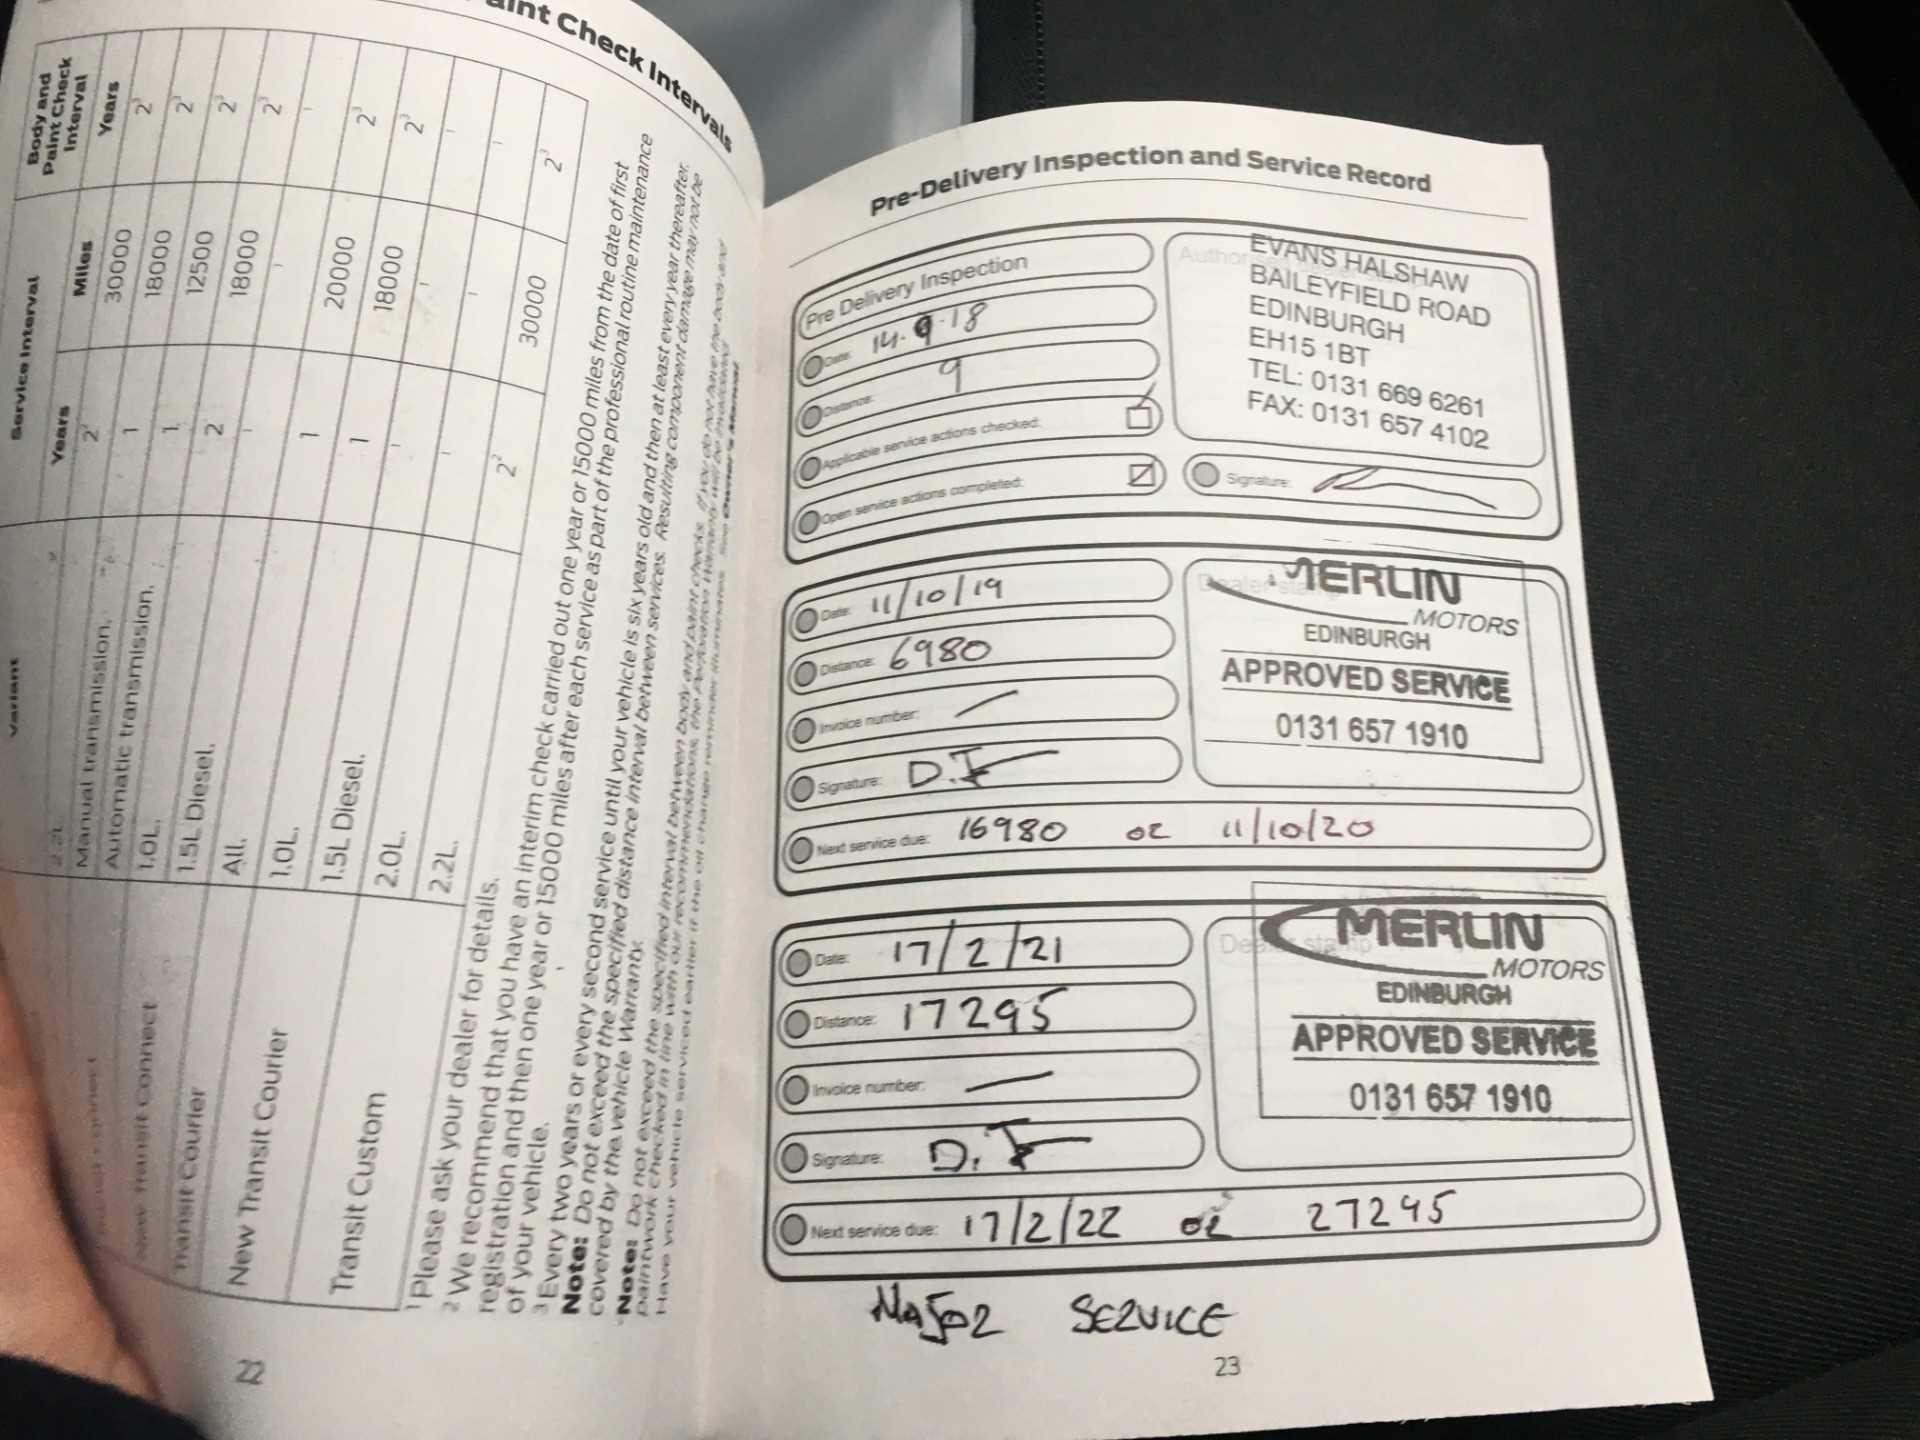 Paint Check Intervals
Variant
Service Interval
Body and
Paint Check
Interval
Years
Miles
Years
2.2L.
2²
30000
2³
Manual transmission.
1
18000
2³
Automatic transmission.
1
12500
2³
1.0L.
2
18000
2³
1.5L Diesel.
-
-
-
All.
1
20000
2³
1.0L.
1
18000
2³
1.5L Diesel.
-
-
-
2.0L.
-
-
-
2.2L.
2²
30000
2³
New Transit Connect
Transit Courier
New Transit Courier
Transit Custom
¹ Please ask your dealer for details.
² We recommend that you have an interim check carried out one year or 15000 miles from the date of first
registration and then one year or 15000 miles after each service as part of the professional routine maintenance
of your vehicle.
³ Every two years or every second service until your vehicle is six years old and then at least every year thereafter.
Note: Do not exceed the specified distance interval between services. Resulting component damage may not be
covered by the vehicle Warranty.
Note: Do not exceed the specified interval between body and paint checks. If you do not have the body and
paintwork checked in line with our recommendations, the Perforation Warranty will be invalidated.
Have your vehicle serviced earlier if the oil change reminder illuminates. See Owner's Manual.
22
Pre-Delivery Inspection and Service Record
Pre Delivery Inspection
Date: 14.9.18
Distance: 9
Applicable service actions checked:
Open service actions completed:
EVANS HALSHAW
BAILEYFIELD ROAD
EDINBURGH
EH15 1BT
TEL: 0131 669 6261
FAX: 0131 657 4102
Signature:
Date: 11/10/19
Distance: 6980
Invoice number: —
Signature: D.F
Next service due: 16980 or 11/10/20
Dealer stamp
MERLIN
MOTORS
EDINBURGH
APPROVED SERVICE
0131 657 1910
Date: 17/2/21
Distance: 17295
Invoice number: —
Signature: D.F
Next service due: 17/2/22 or 27295
Dealer stamp
MERLIN
MOTORS
EDINBURGH
APPROVED SERVICE
0131 657 1910
MAJOR SERVICE
23